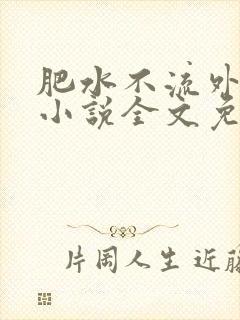 肥水不流外
小说全文免
片岡人生 近藤